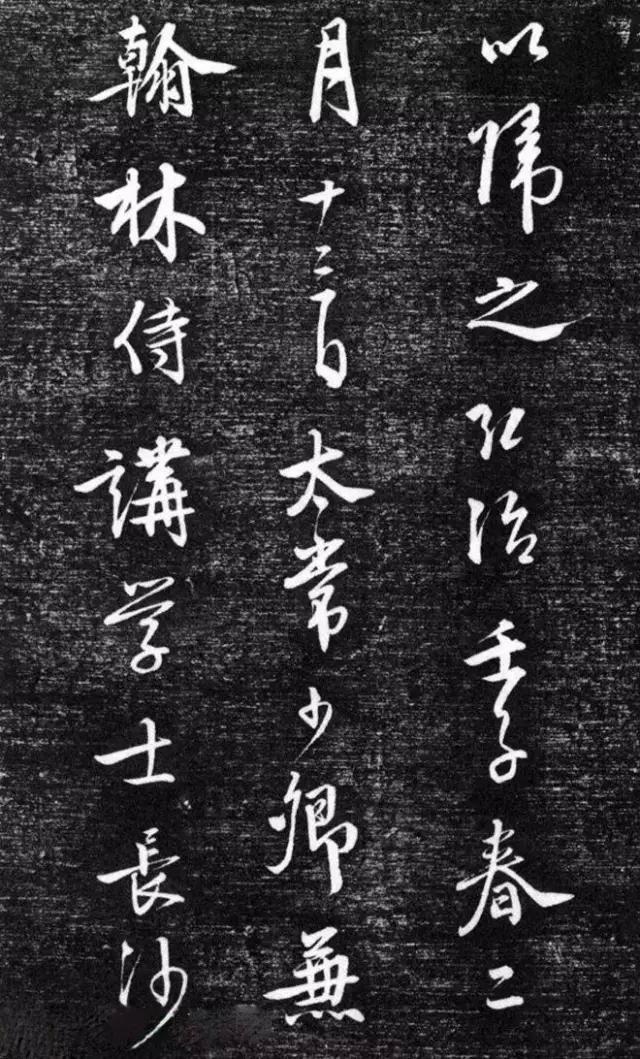 以歸之弘治壬子春二
月十二日太常少卿兼
翰林侍講學士長沙